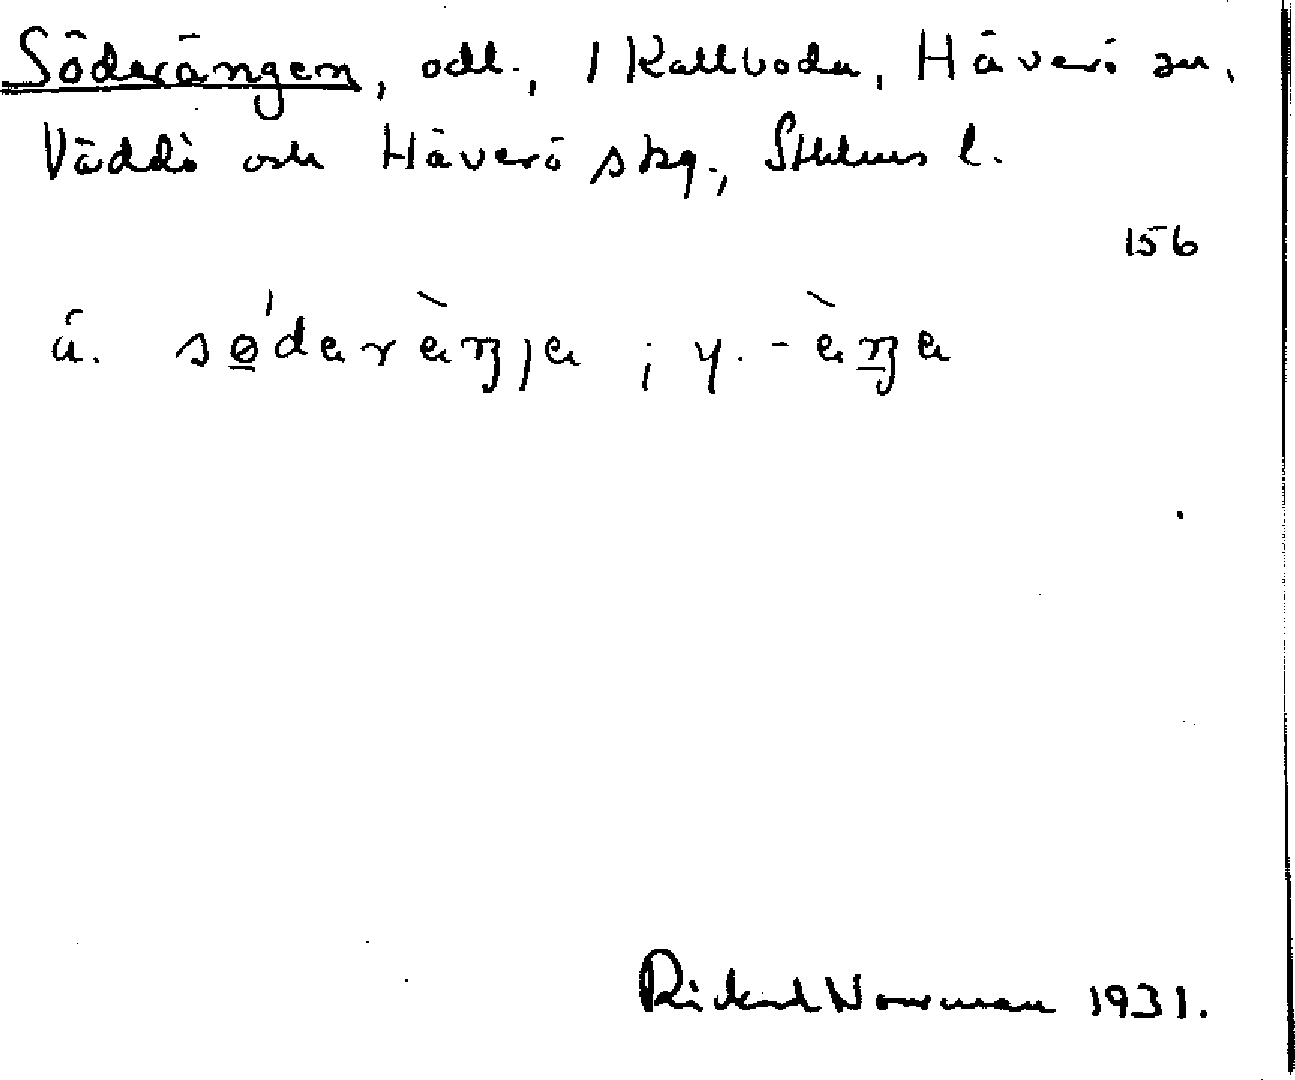 Söderängen, odl., 1 Kallboda, Häverö sn,
Väddö och Häverö skg., Sthlms l.
156
ä. sø̲'darὲŋja ; y. -ὲŋ̲a
Rickard Norrman 1931.